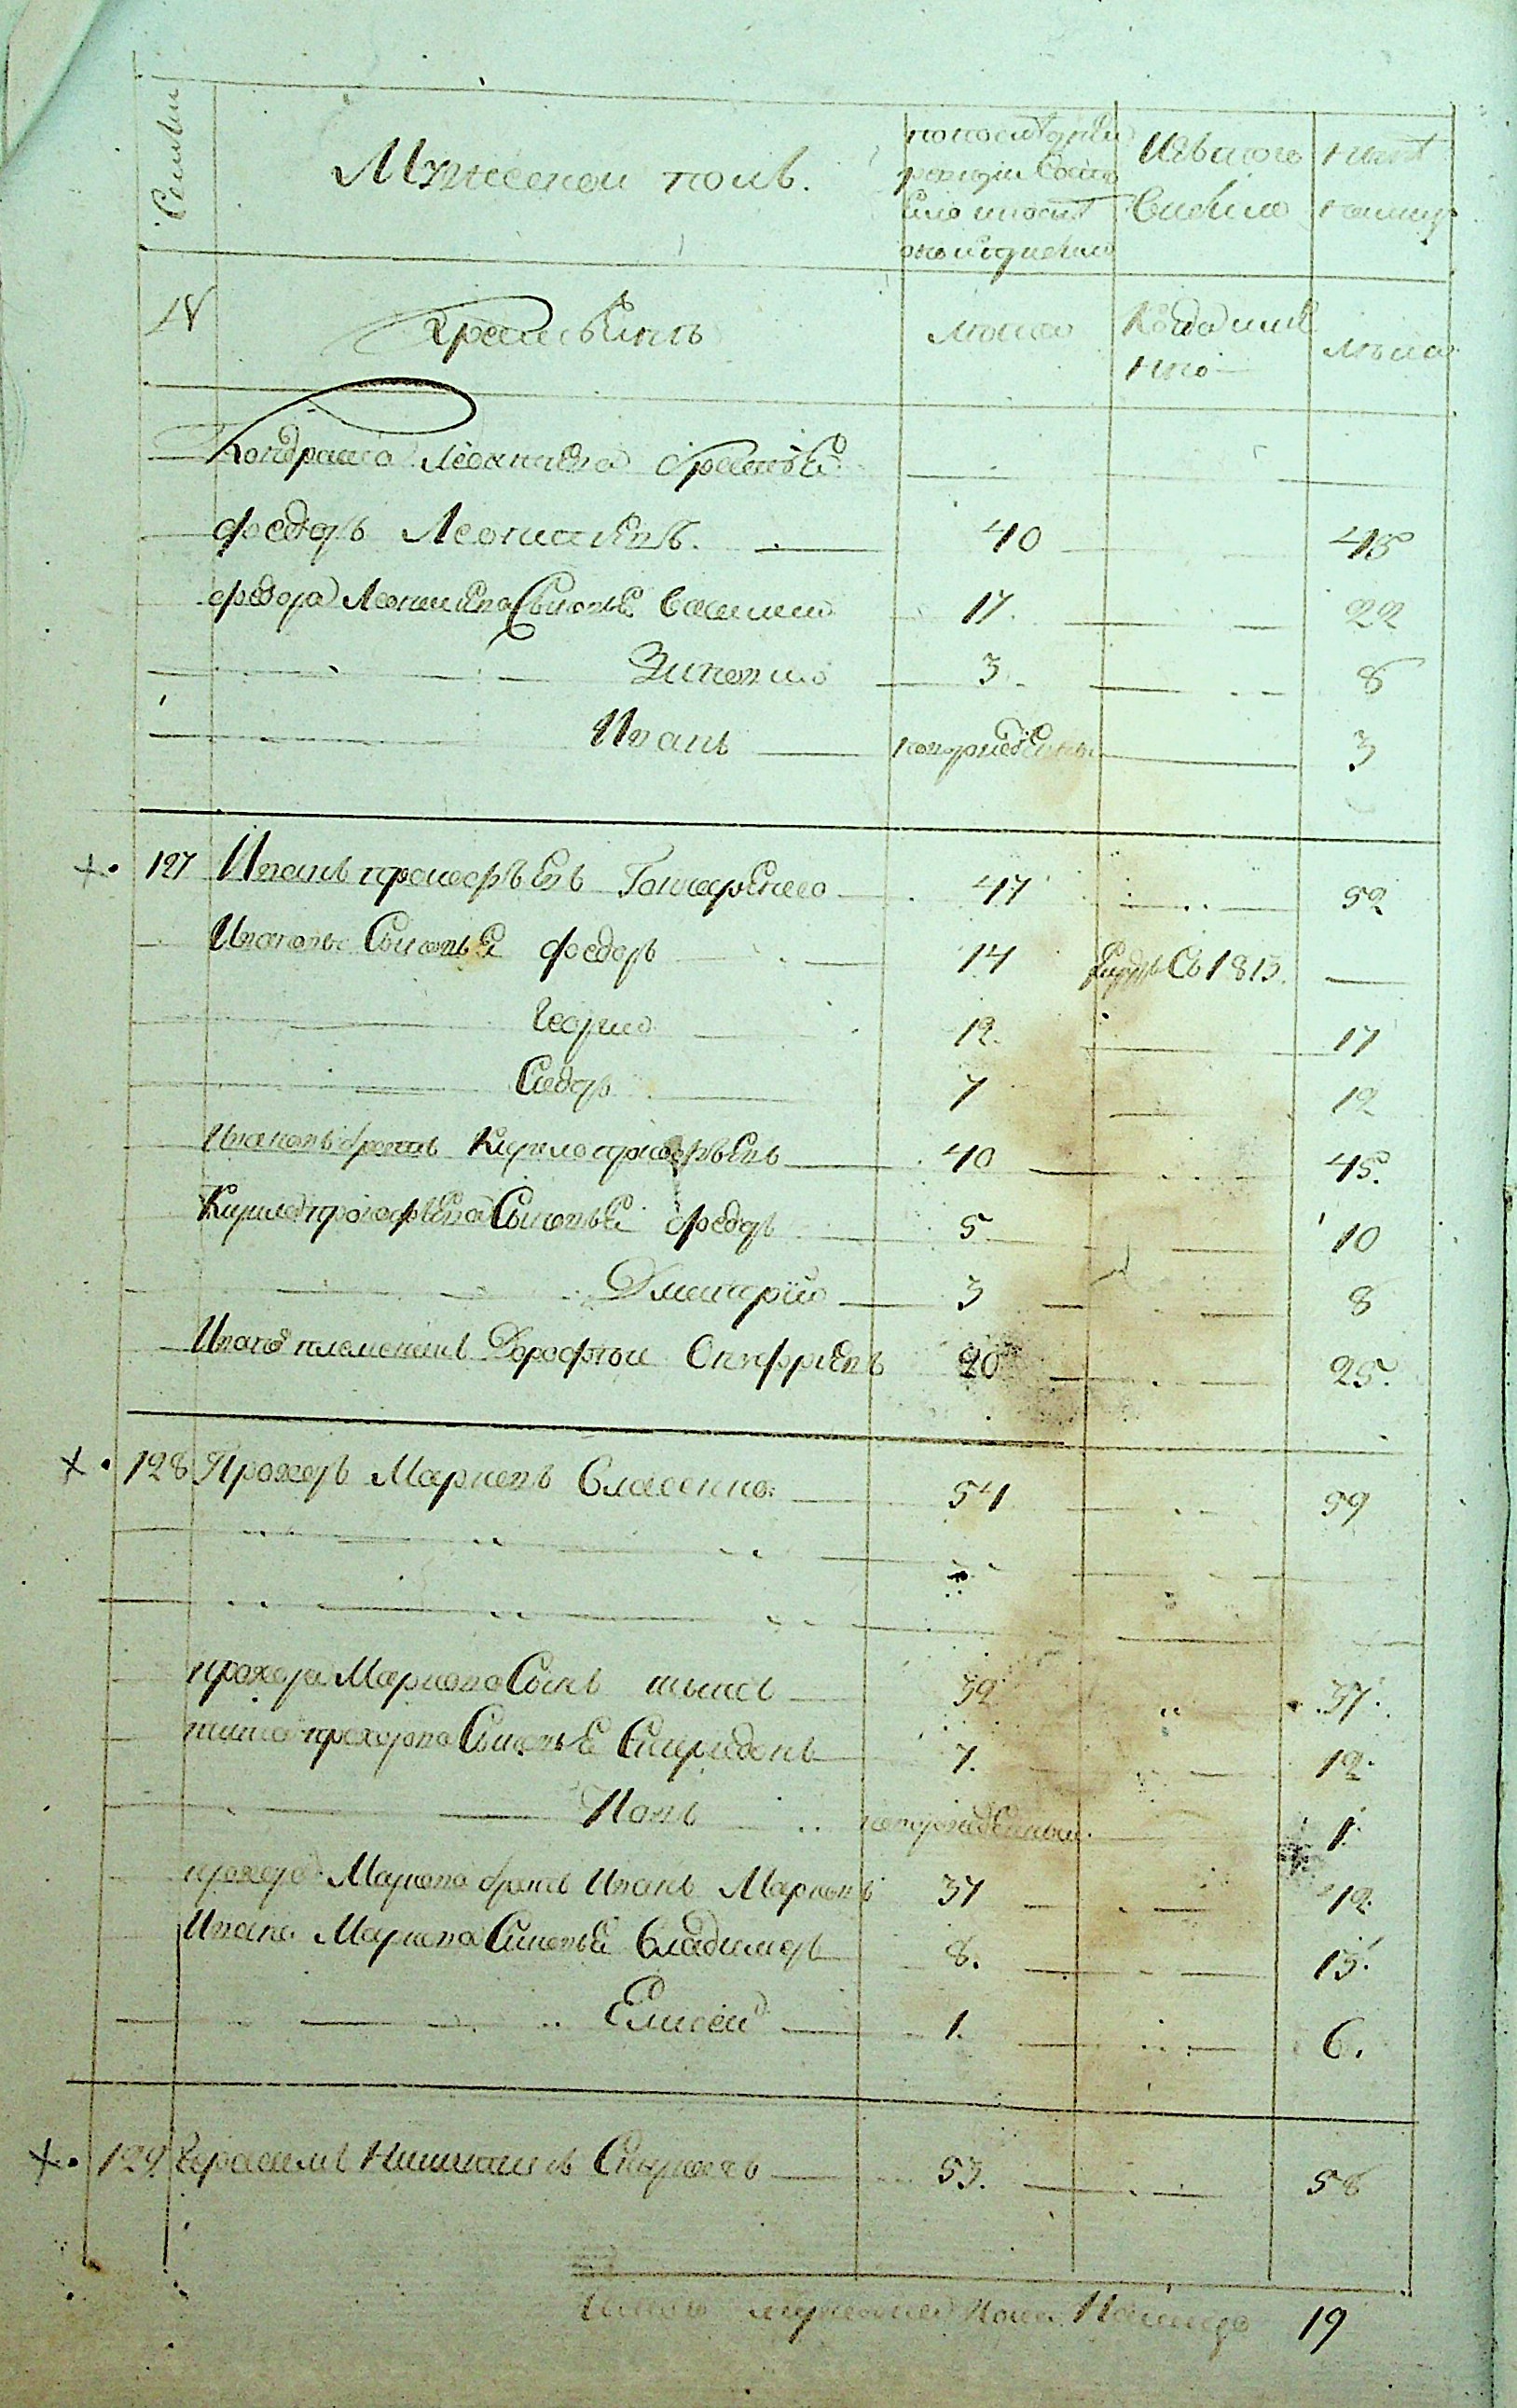 Семьи
Мужеской полъ.
по последней ревизіи состояло и после оной прибыло
Изъ того выбыло
Ныне налицо
№
Крестьянъ
Лета
Когда именно
Лета
Кондрата Леонтьева братья
Федоръ Леонтьевъ. 40 45
Федора Леонтьева Сыновья Василий 17. 22
Зиновий 3. 8
Иванъ новорожденны 3
127 Иванъ Прокофьевъ Гончаренко 47 52
Ивановы Сыновья Федоръ 14 Съ 1813.
Георгий 12. 17
Сидоръ 7 12
Ивановъ братъ Кирило Прокофьевъ 40 45.
Кирила Прокофьева Сыновья Федоръ 5 10
Дмитрій 3 8
Ивана племянникъ Дорофей 20 25.
128 Прохоръ Марковъ Власенко 54 59
Прохора Маркова Сынъ Титъ 32 37.
Тита Прохорова Сыновья Спиридонъ 7. 12.
новорожденный. 1.
Прохора Маркова братъ Иванъ Марковъ 37 42.
Ивана Маркова Сыновья Владимеръ 8. 13.
Елисей 1. 6.
129. Герасимъ 53. 58
Итого мужеска пола Налицо 19